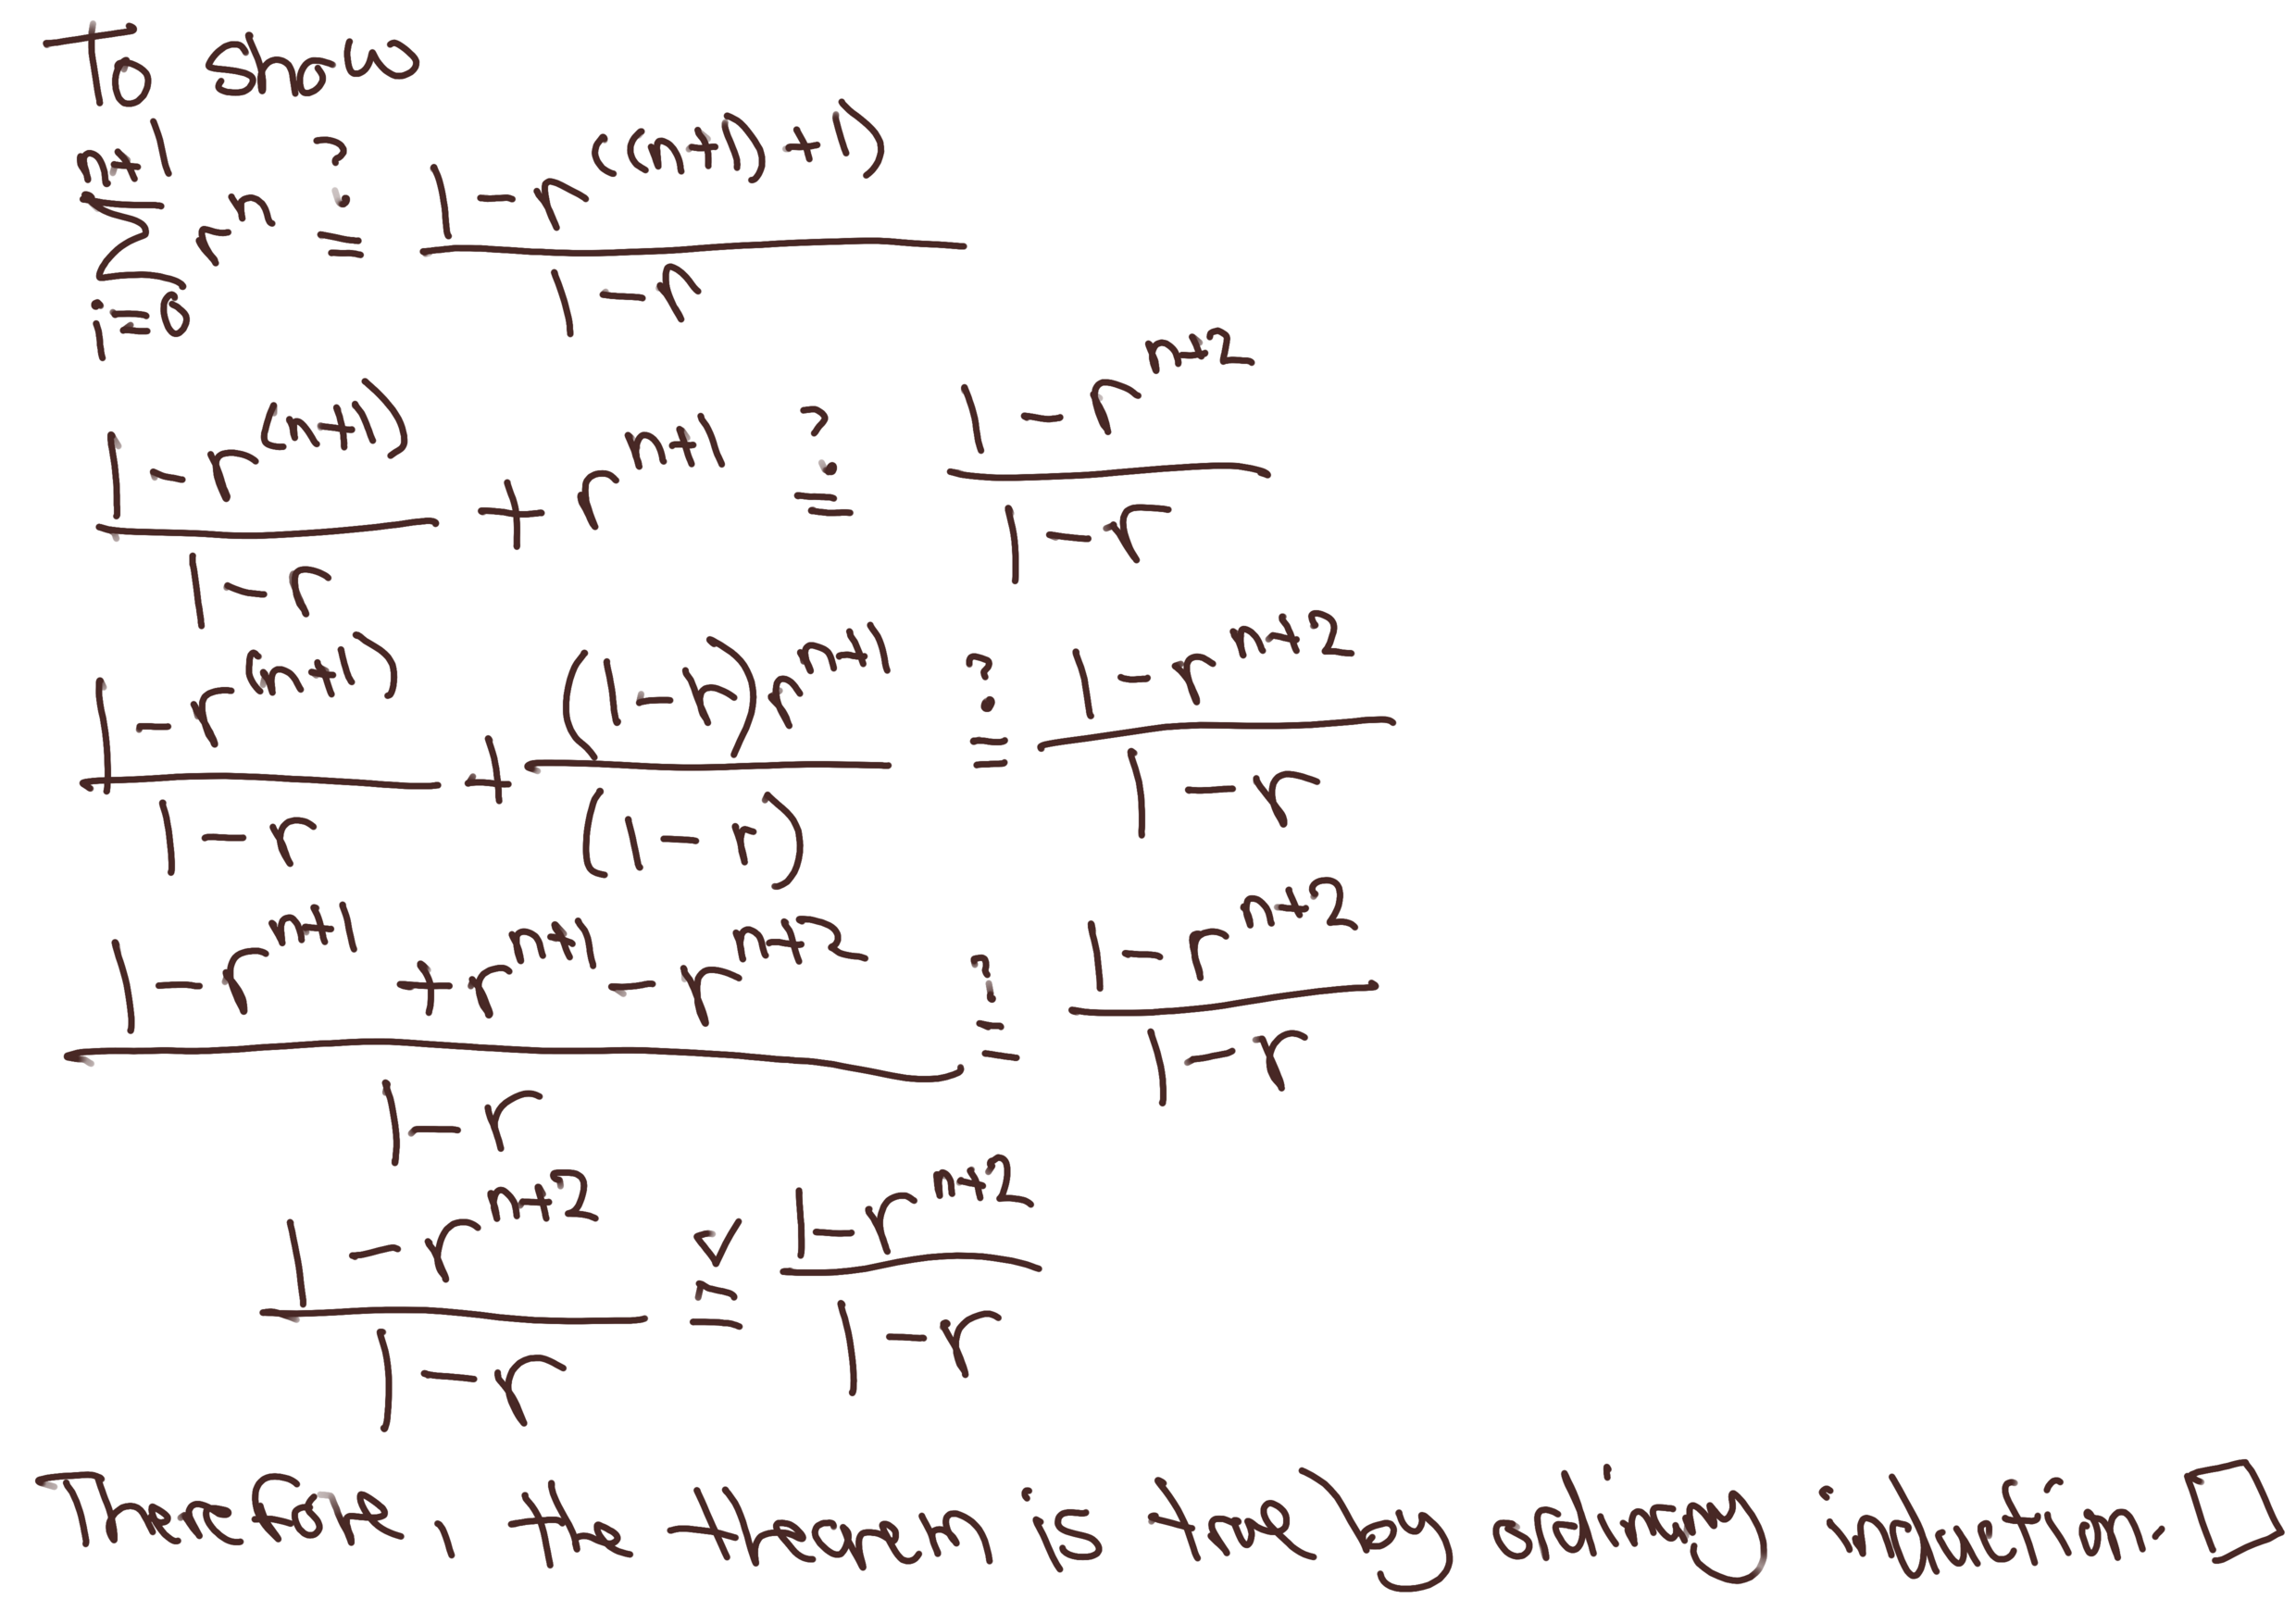 To show
\sum_{i=0}^{n+1} r^n \stackrel{?}{=} \frac{1-r^{((n+1)+1)}}{1-r}
\frac{1-r^{(n+1)}}{1-r} + r^{n+1} \stackrel{?}{=} \frac{1-r^{n+2}}{1-r}
\frac{1-r^{(n+1)}}{1-r} + \frac{(1-r)r^{n+1}}{(1-r)} \stackrel{?}{=} \frac{1-r^{n+2}}{1-r}
\frac{1-r^{n+1}+r^{n+1}-r^{n+2}}{1-r} \stackrel{?}{=} \frac{1-r^{n+2}}{1-r}
\frac{1-r^{n+2}}{1-r} \stackrel{✓}{=} \frac{1-r^{n+2}}{1-r}
Therefore, the theorem is true by ordinary induction. □